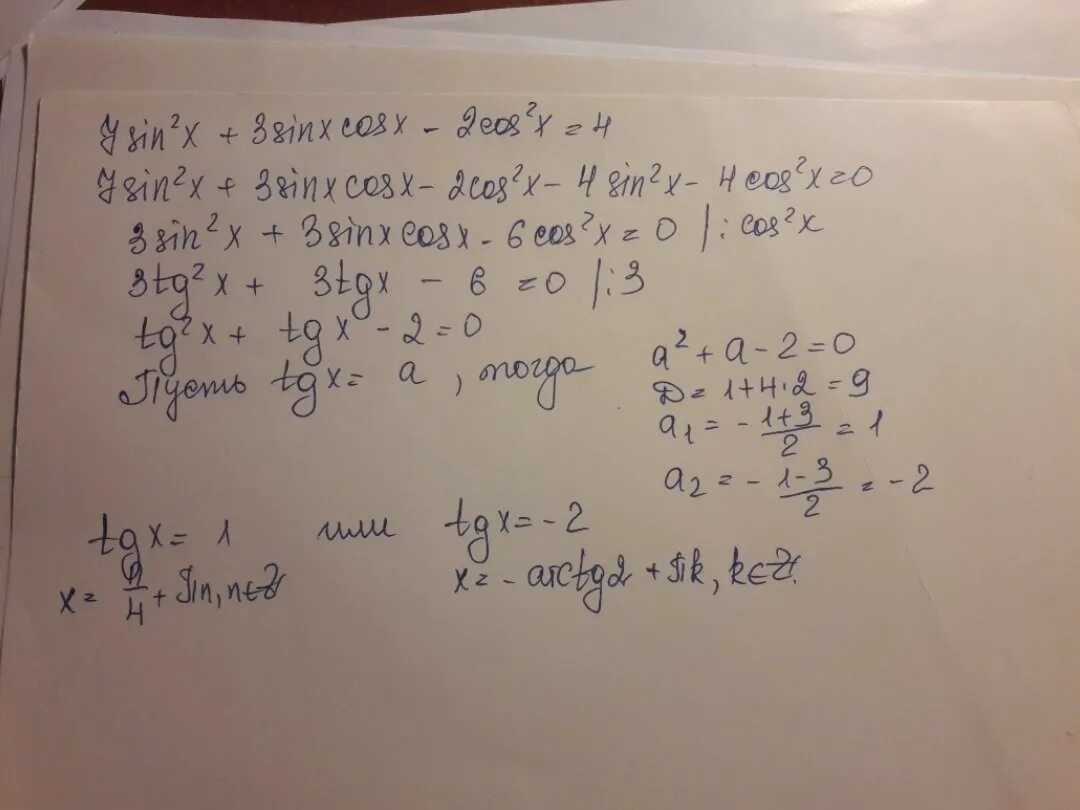 7sin²x + 3sinxcosx - 2cos²x = 4
7sin²x + 3sinxcosx - 2cos²x - 4sin²x - 4cos²x = 0
3sin²x + 3sinxcosx - 6cos²x = 0 |: cos²x
3tg²x + 3tgx - 6 = 0 |:3
tg²x + tgx - 2 = 0
Пусть tgx = a, тогда
a² + a - 2 = 0
D = 1+4·2 = 9
a₁ = -\frac{1+3}{2} = 1
a₂ = -\frac{1-3}{2} = -2
tgx = 1 или tgx = -2
x = \frac{π}{4} + πn, n∈Z
x = -arctg2 + πk, k∈Z.